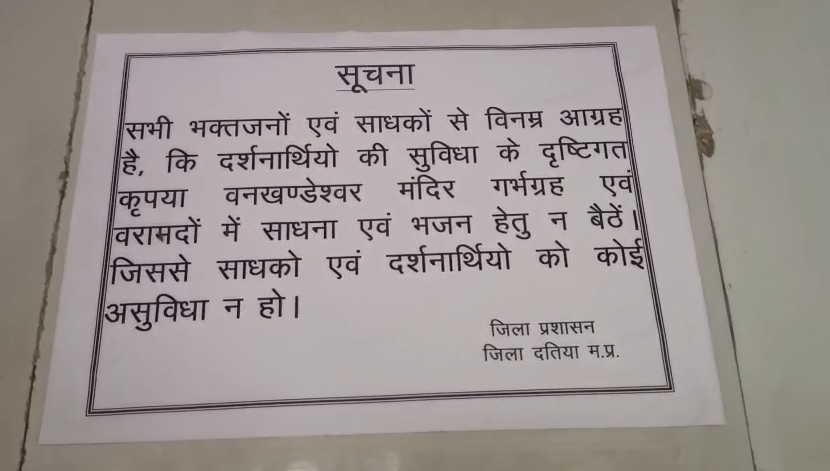 सूचना
सभी भक्तजनों एवं साधकों से विनम्र आग्रह
है, कि दर्शनार्थियो की सुविधा के दृष्टिगत
कृपया वनखण्डेश्वर मंदिर गर्भग्रह एवं
वरामदों में साधना एवं भजन हेतु न बैठें।
जिससे साधको एवं दर्शनार्थियो को कोई
असुविधा न हो।
जिला प्रशासन
जिला दतिया म.प्र.